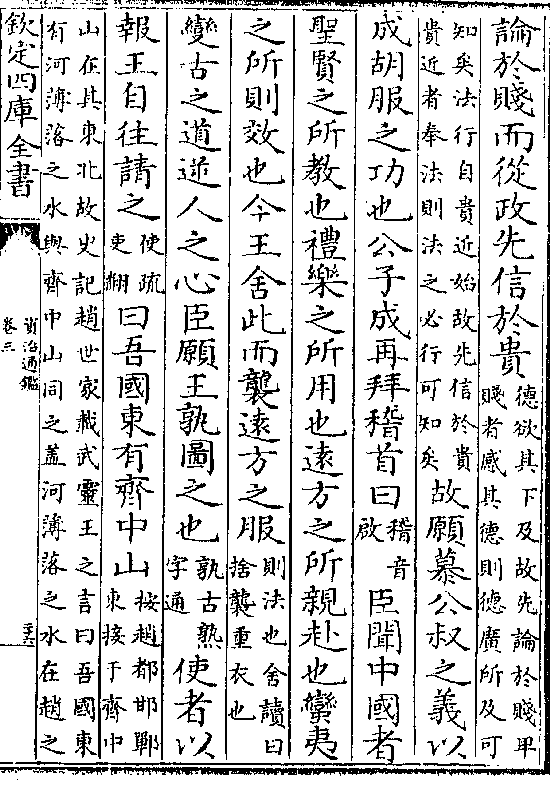 論於賤而從政先信於貴德欲其下及故先論於賤卑
賤者感其德則德廣所及可
知矣法行自貴近始故先信於貴
貴近者奉法則法之必行可知矣故願慕公叔之義以
成胡服之功也公子成再拜稽首曰稽音
啟臣聞中國者
聖賢之所教也禮樂之所用也遠方之所親赴也蠻夷
之所則效也今王舍此而襲遠方之服則法也舍讀曰
捨襲重衣也
變古之道逆人之心臣願王孰圖之也孰古熟
字通使者以
報王自往請之使疏
吏翻曰吾國東有齊中山按趙都邯鄲
東接于齊中
山在其東北故史記趙世家載武靈王之言曰吾國東
有河薄落之水與齊中山同之蓋河薄落之水在趙之
欽定四庫全書
資治通鑑
卷三